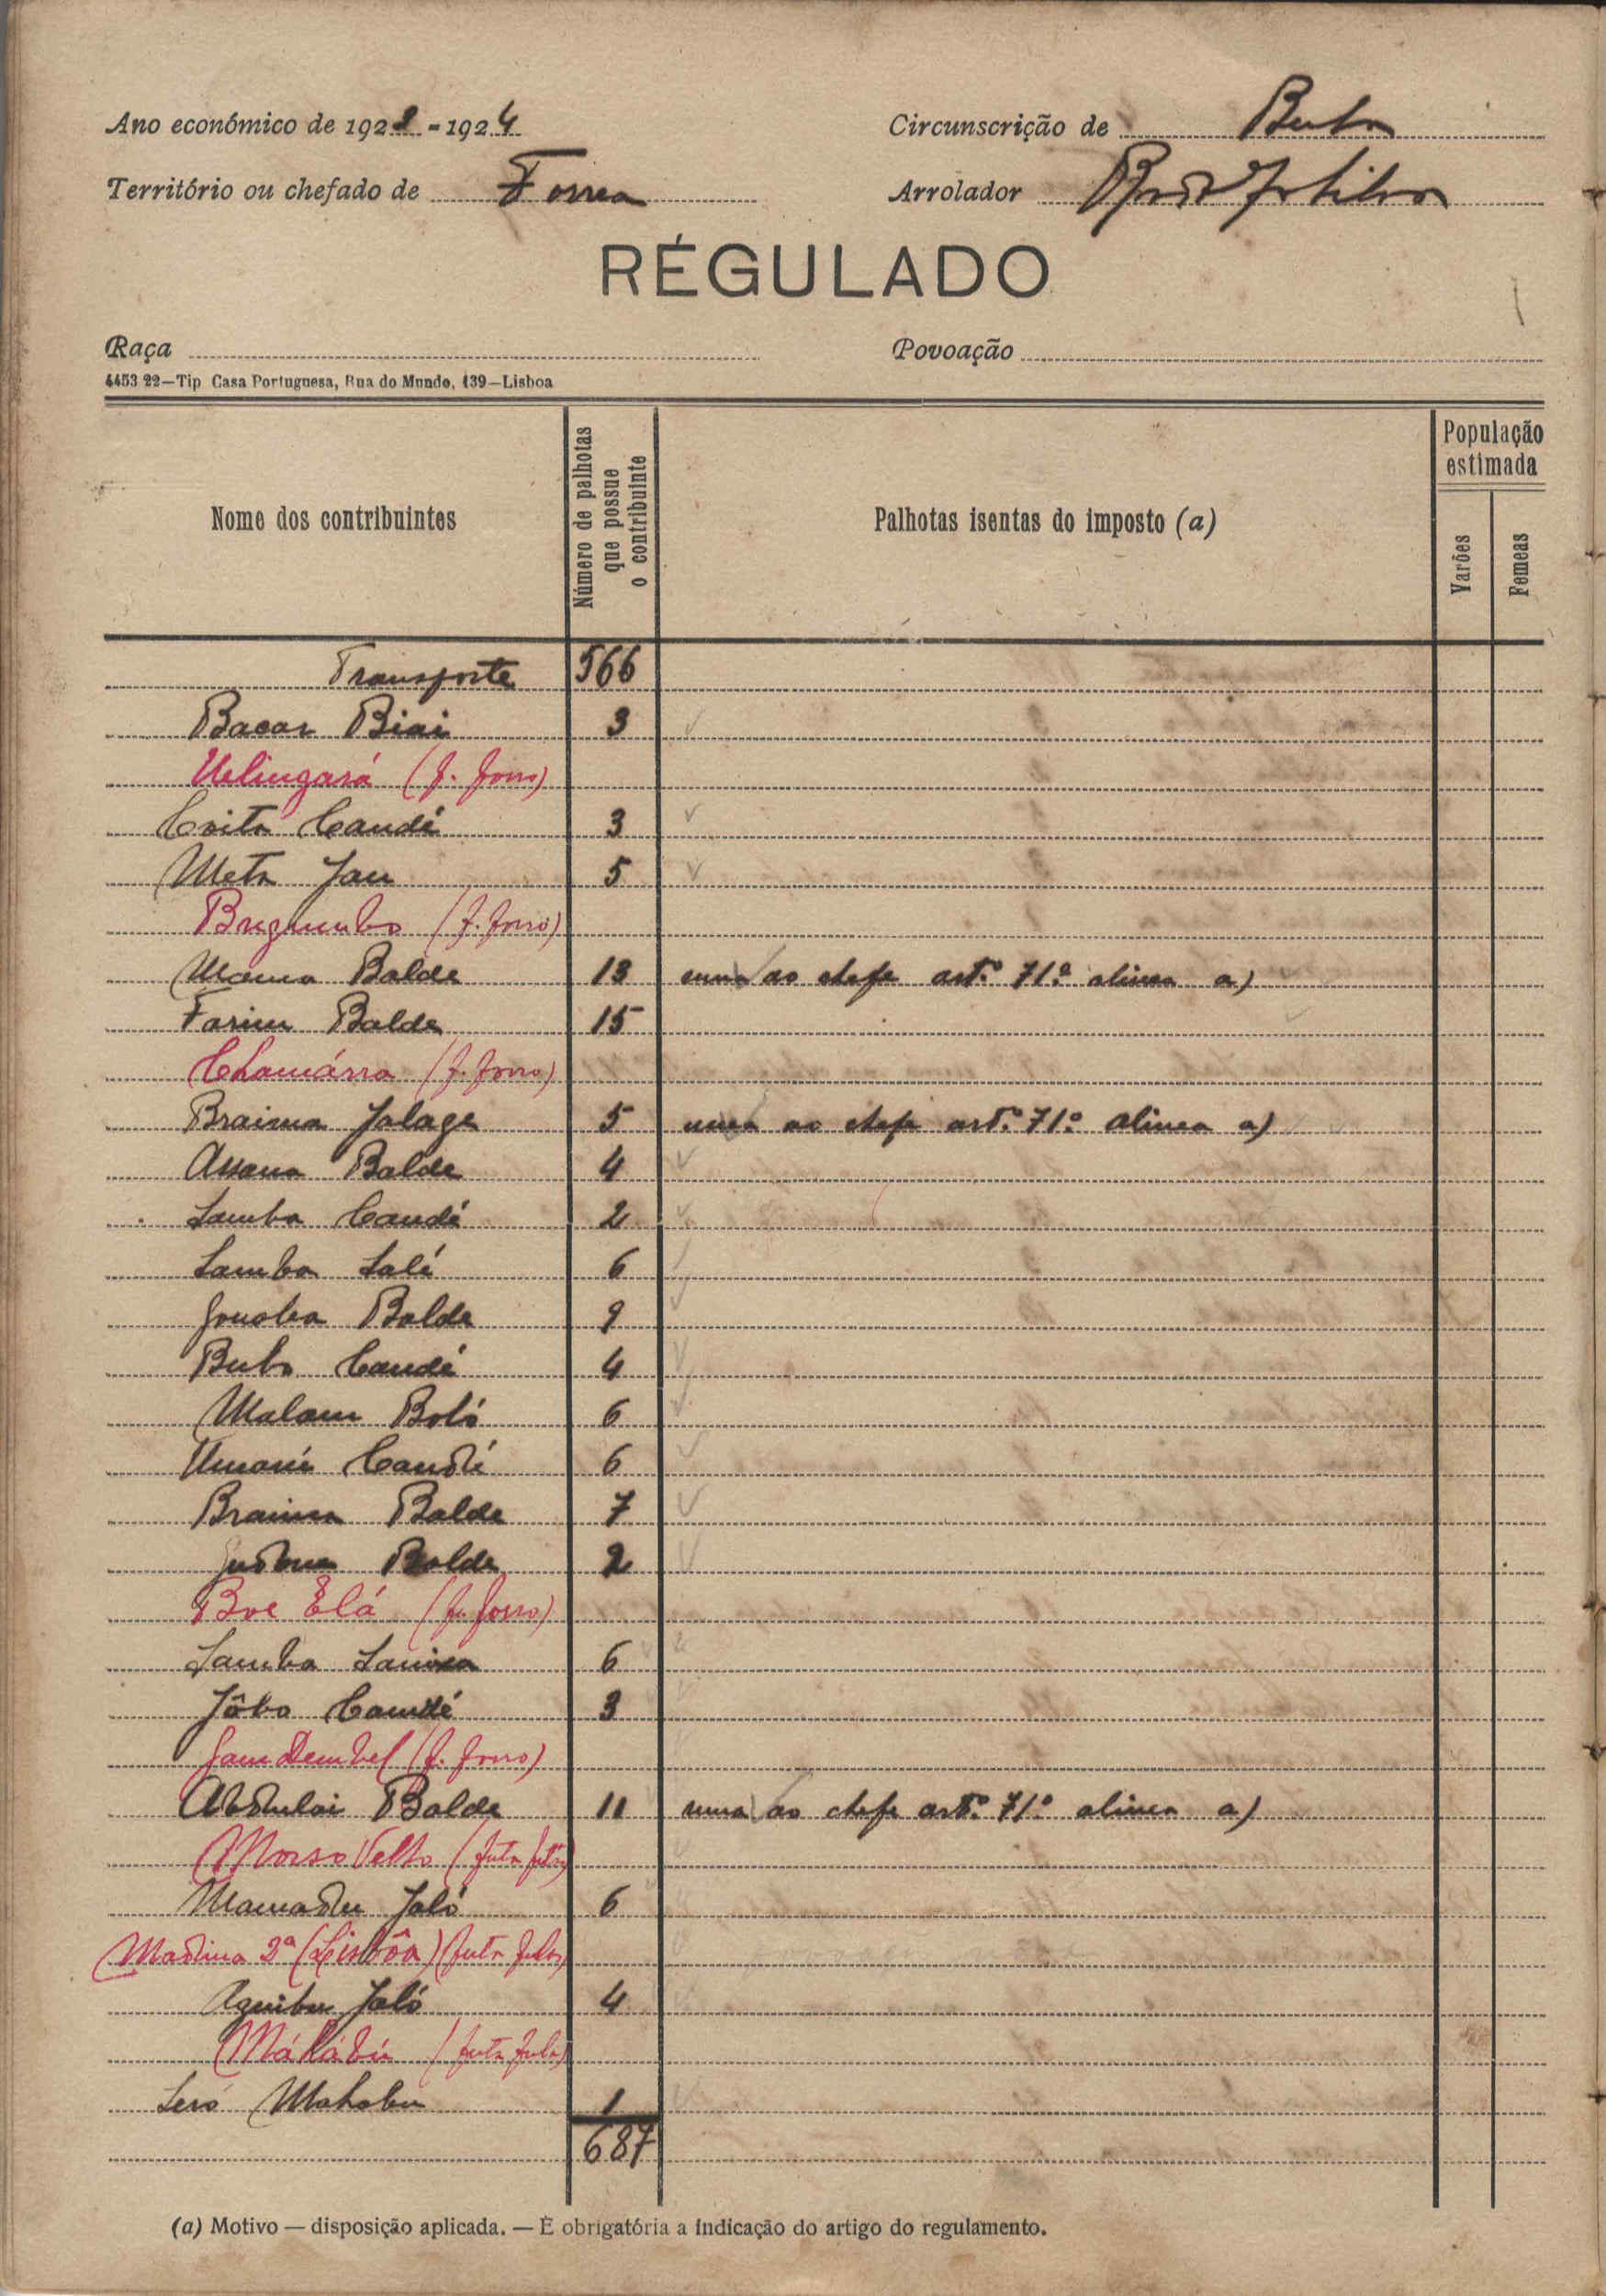 Ano económico de 1923 - 1924
Circunscrição de Buba
Território ou chefado de Forrea
Arrolador
RÉGULADO
Raça
Povoação
4453 22—Tip Casa Portuguesa, Rua do Mundo, 139—Lisboa
Nome dos contribuintes
Número de palhotas que possue o contribuinte
Palhotas isentas do imposto (a)
População estimada
Varões
Femeas
Transporte 566
Bacar Biai 3
Uelingará (f. forro)
Coita Candé 3
Meta Jau 5
(f. forro)
Mama Balde 13 uma ao chefe artº. 71º. alinea a)
Farim Balde 15
Chamárra (f. forro)
Braima Jalage 5 uma ao chefe artº. 71º. alinea a)
Assana Balde 4
Samba Candé 2
Samba Salé 6
Balde 9
Bubo Candé 4
Malam Boló 6
Umarú Candé 6
Braima Balde 7
Balde 2
Boe Elá (f. forro)
Samba 6
Jôbo Candé 3
Gam Dembel (f. forro)
Abdulai Balde 11 uma ao chefe artº. 71º alinea a)
Morso Velho (futa fula)
Mamadu Jaló 6
Madina 2ª (Lisbôa) (futa fula)
Aguibu Jaló 4
Máhábú (futa fula)
Seró Mahabu 1
687
(a) Motivo — disposição aplicada. — É obrigatória a indicação do artigo do regulamento.